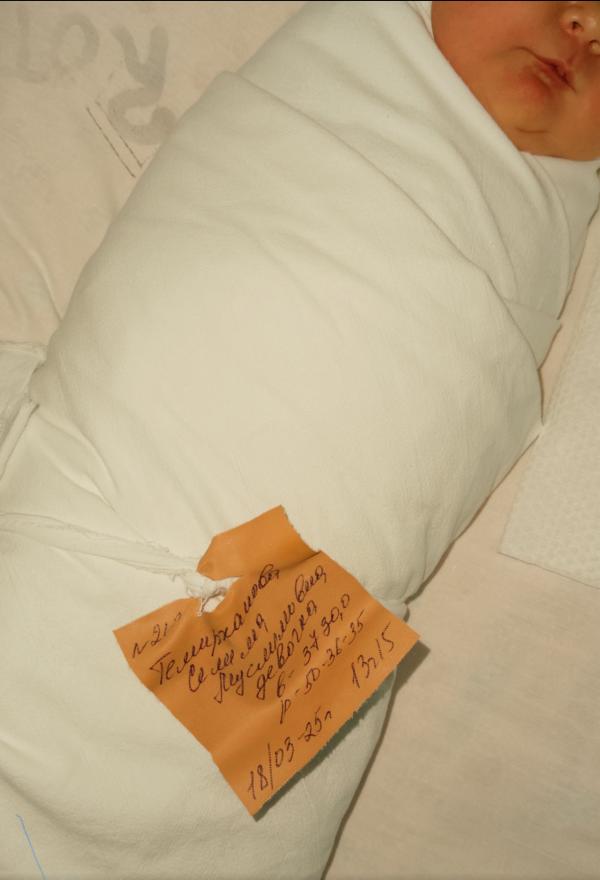 Темирханова
Салима
Муслимовна
девочка
в- 3730,0
р-50-36-35
18/03-25г 13ч15